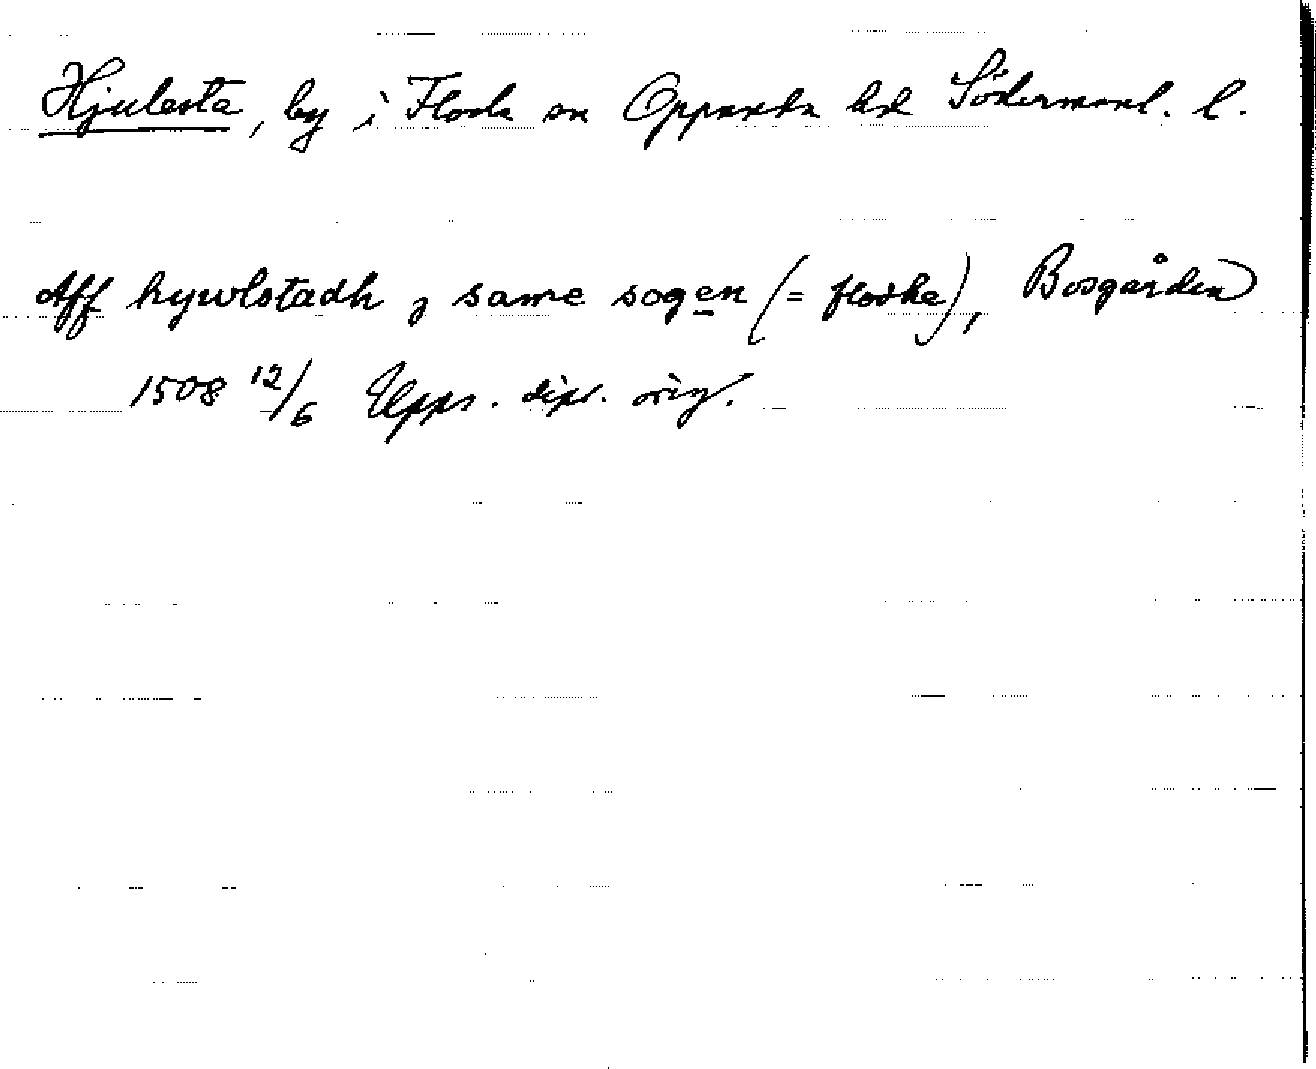 Hjulesta, by i Floda sn Oppunda hd Södermanl. l.
Aff hywlstadh j same sogen (= flodha), Bosgården
1508 12/6 Upps. dipl. orig.